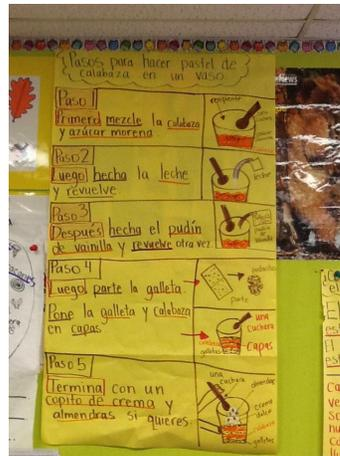 Pasos para hacer pastel de
calabaza en un vaso
Paso 1
Primero mezcle la calabaza
y azúcar morena
recipiente
Paso 2
Luego hecha la leche
y revuelve
leche
Paso 3
Después hecha el pudín
de vainilla y revuelve otra vez
pudín
de
vainilla
Paso 4
Luego parte la galleta.
Pone la galleta y calabaza
en capas
pedacitos
parte
una
cuchara
calabaza
galletas
capas
Paso 5
Termina con un
copito de crema y
almendras si quieres.
una
cuchara
almendras
crema
dulce
calabaza
galletas